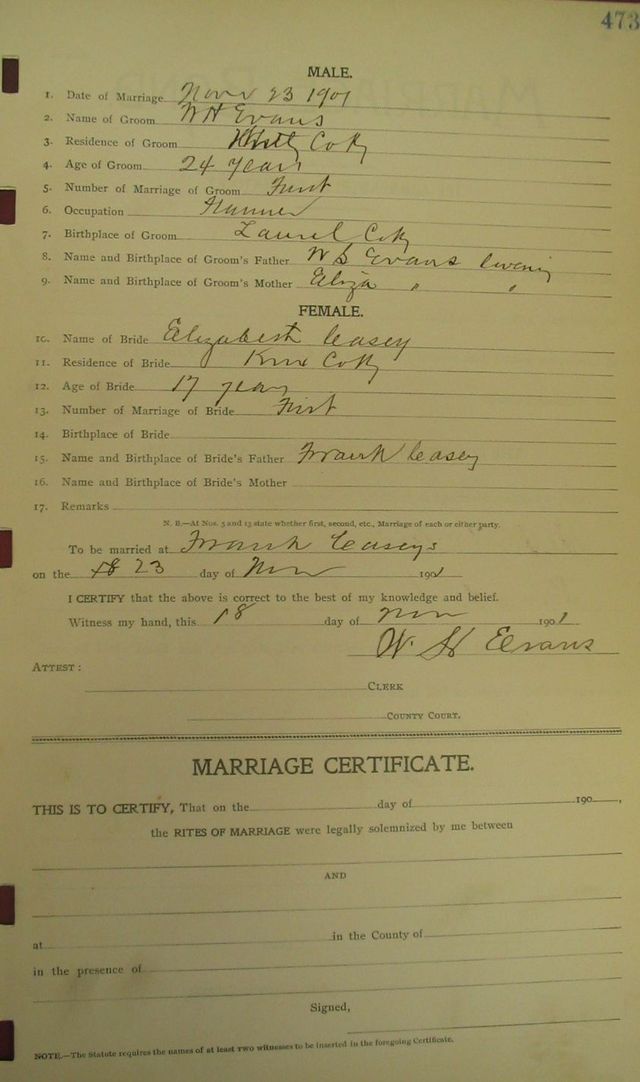 473
MALE.
1. Date of Marriage Nov 23 1901
2. Name of Groom W H Evans
3. Residence of Groom Whitley Co Ky
4. Age of Groom 24 years
5. Number of Marriage of Groom First
6. Occupation Farmer
7. Birthplace of Groom Laurel Co Ky
8. Name and Birthplace of Groom's Father W S Evans
9. Name and Birthplace of Groom's Mother Eliza " "
FEMALE.
10. Name of Bride Elizabeth Casey
11. Residence of Bride Knox Co Ky
12. Age of Bride 17 years
13. Number of Marriage of Bride First
14. Birthplace of Bride
15. Name and Birthplace of Bride's Father Frank Casey
16. Name and Birthplace of Bride's Mother
17. Remarks
N. B.—At Nos. 5 and 13 state whether first, second, etc., Marriage of each or either party.
To be married at Frank Caseys
on the 18 23 day of Nov 1901
I CERTIFY that the above is correct to the best of my knowledge and belief.
Witness my hand, this 18 day of Nov 1901
W. H Evans
ATTEST:
CLERK
COUNTY COURT.
MARRIAGE CERTIFICATE.
THIS IS TO CERTIFY, That on the day of 190 ,
the RITES OF MARRIAGE were legally solemnized by me between
AND
at in the County of
in the presence of
Signed,
NOTE.—The Statute requires the names of at least two witnesses to be inserted in the foregoing Certificate.